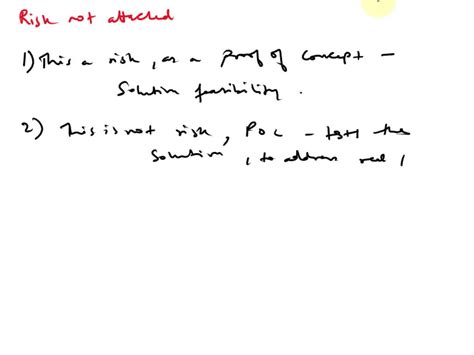 Risk not attached
1) This a risk, as a Proof of Concept -
Solution feasibility.
2) This is not risk, POC - test the
Solution, to address real